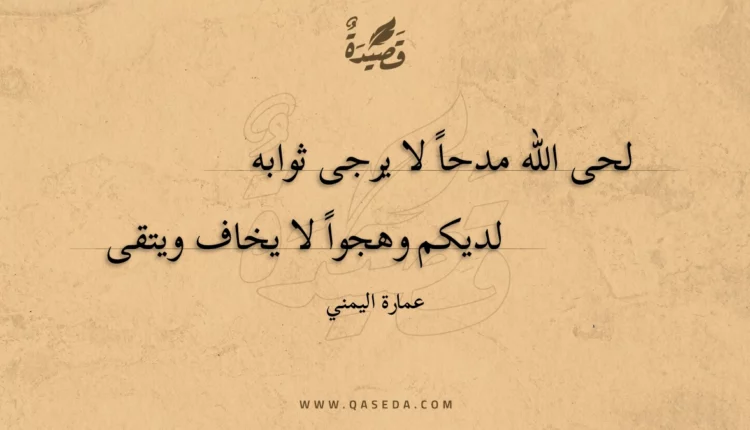 قَصِيْدَةٌ
لحى الله مدحاً لا يرجى ثوابه
لديكم وهجواً لا يخاف ويتقى
عمارة اليمني
WWW.QASEDA.COM